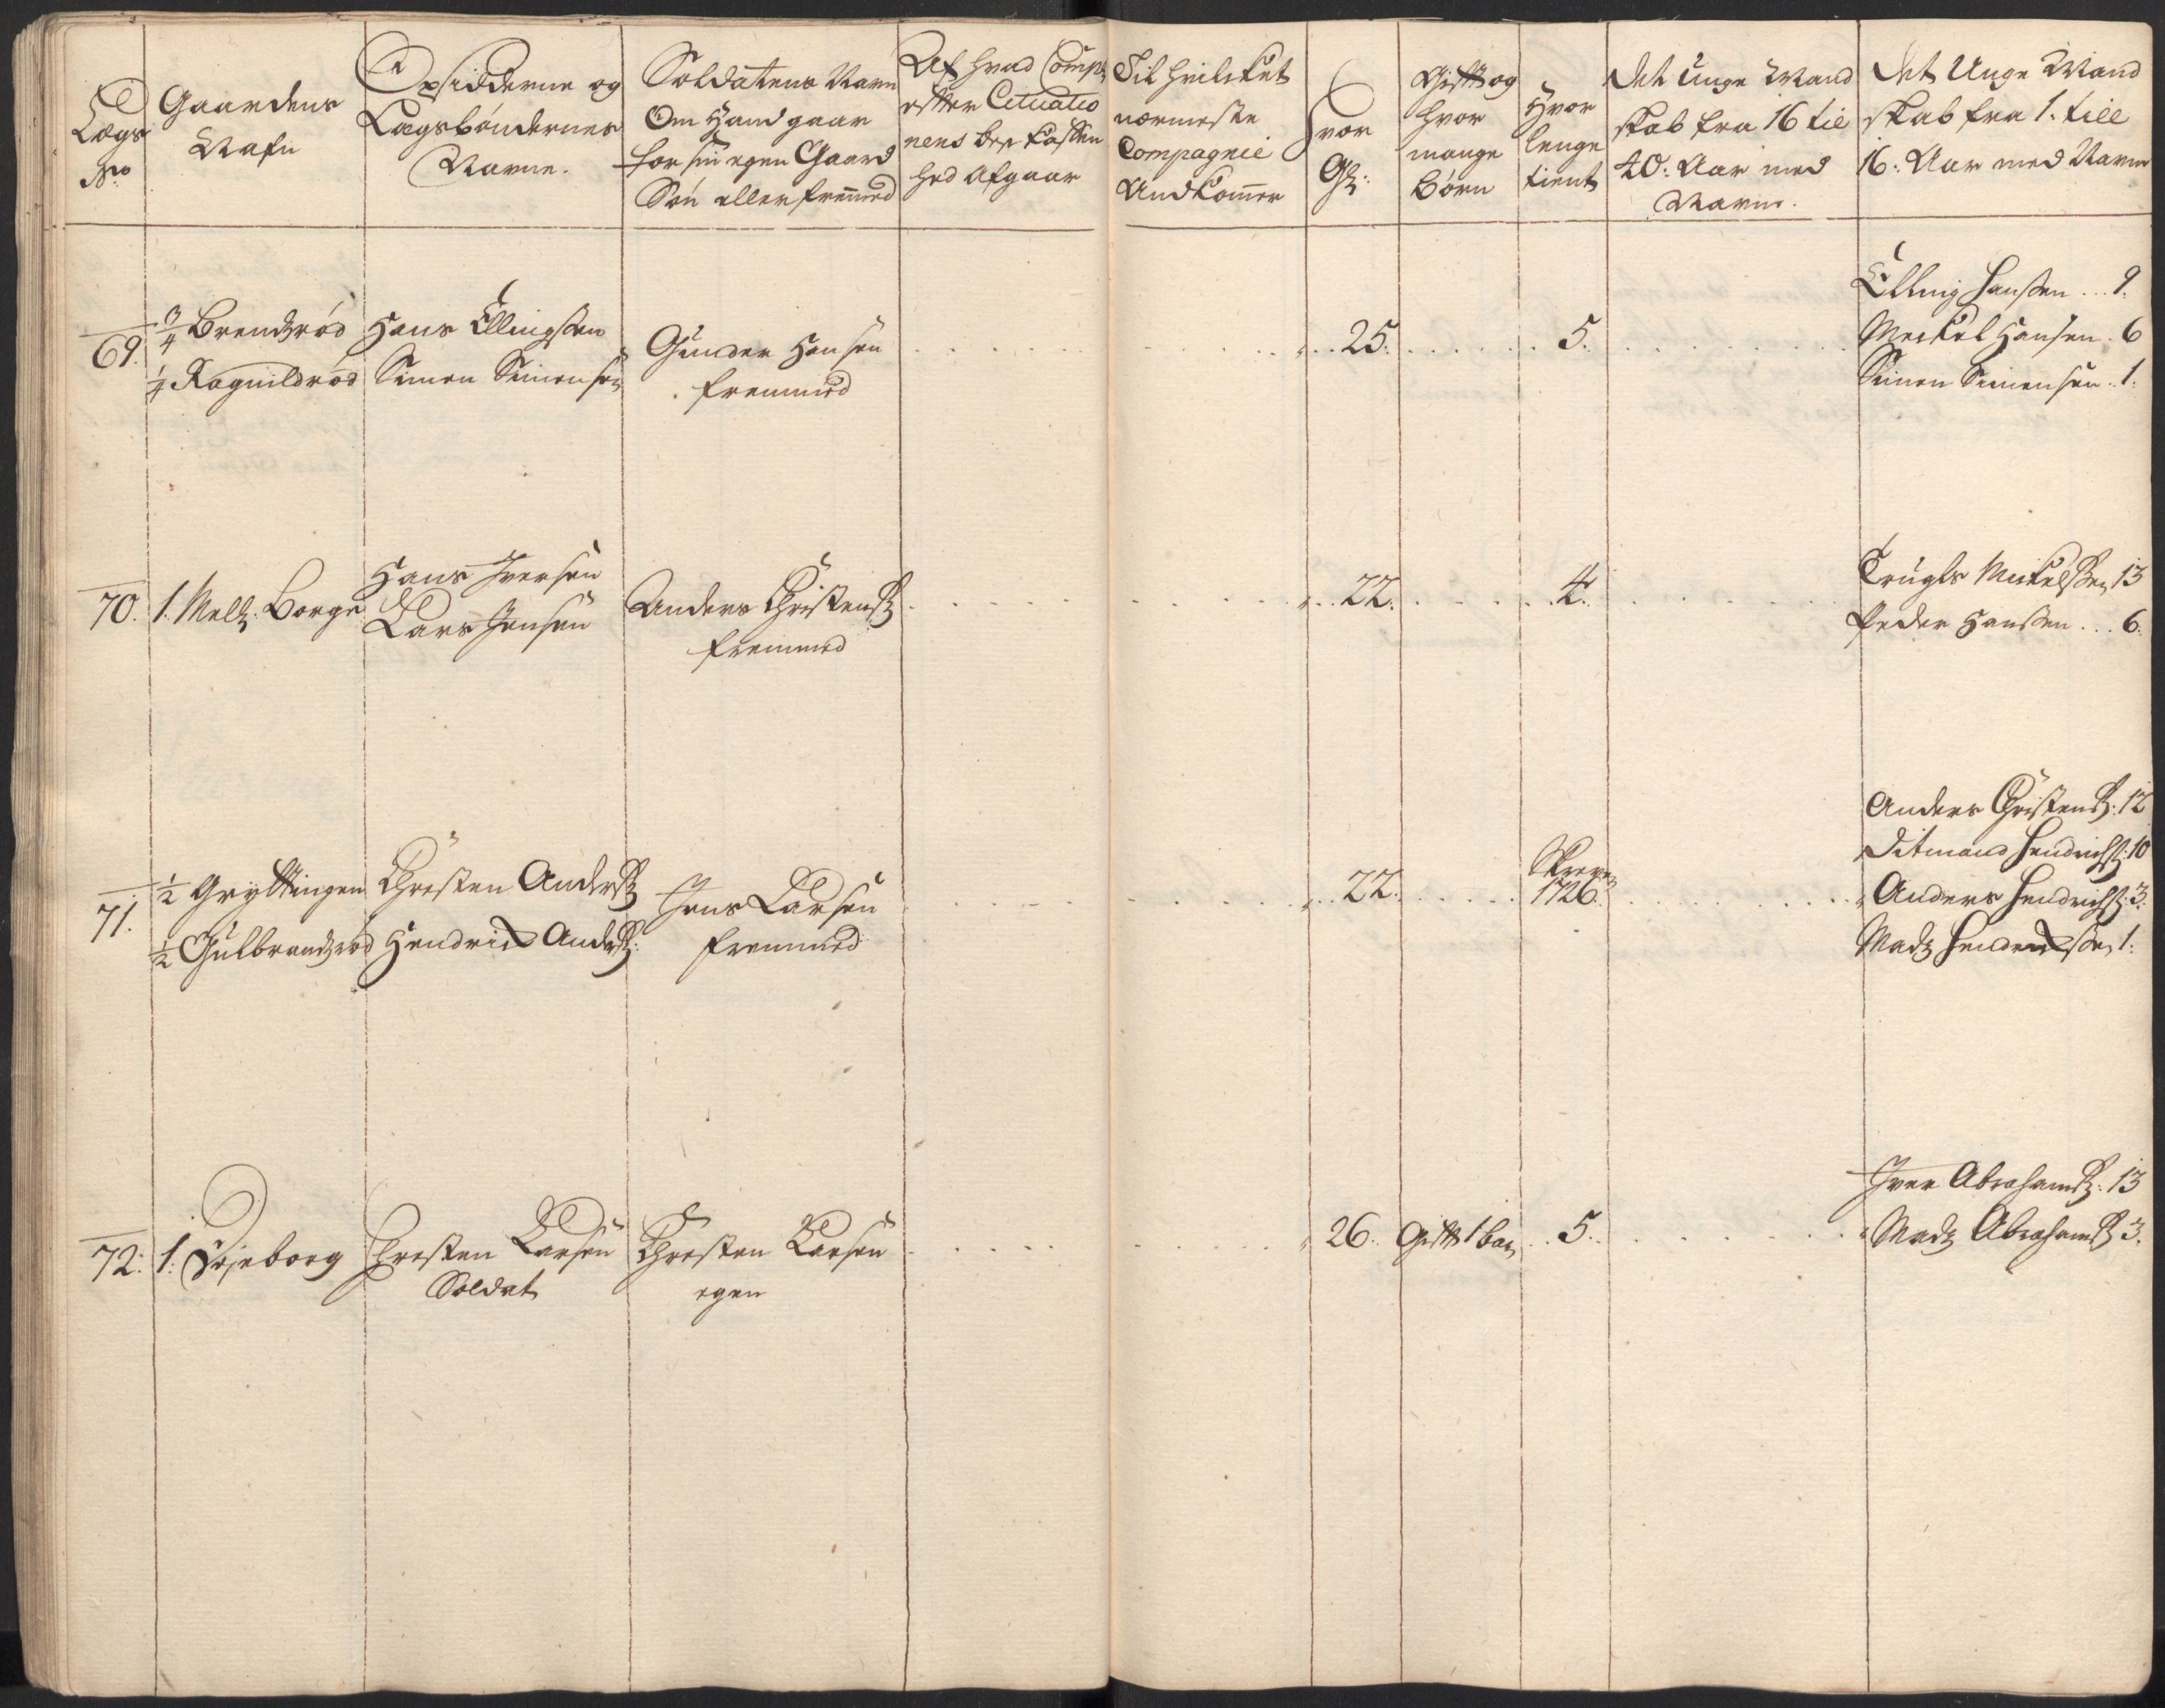 Lægs
No
Gaardens
Nafn
Opsidderne og
Lægsbøndernes
Navne.
Soldatens Navn
Om Hand gaar
for sin egen Gaard
Søn eller fremmed
Af hvad Comp:
efter Cituatio
nens beskaffen
hed Afgaar
Till hvilcket
nærmeste
Compagnie
Andkommer
Hvor
Gl:
Gift og
hvor
mange
Børn
Hvor
lenge
tient
Det Unge Mand
skab fra 16 til
40: Aar med
Navne.
Det Unge Mand
skab fra 1. till
16: Aar med Navne
69.
3/4 Brendzrød
1/4 Ragnildrød
Hans Ellingsen
Simen Simensen
Gunder Hansen
fremmed
25.
5.
Elling Hansen ... 9.
Mickel Hansen . 6
Simen Simensen .. 1.
70.
1. Mell: Borge
Hans Iversen
Lars Jensen
Anders Christens:
fremmed
22.
4.
Trugls Mickelsen 13
Peder Hansen ... 6.
71.
1/2 Gryttingen
1/2 Gulbrandzrød
Christen Anders:
Hendrick Anders:
Jens Larsen
fremmed
22.
1726.
Anders Christens: 12
Ditmand Hendrichs: 10
Anders Hendrichs: 3.
Madz Hendricksen 1.
72.
1. Søeborg
Christen Larsen
Soldat
Christen Larsen
egen
26.
Gift 1 barn
5.
Iver Abrahams: 13
Madz Abrahams: 3.